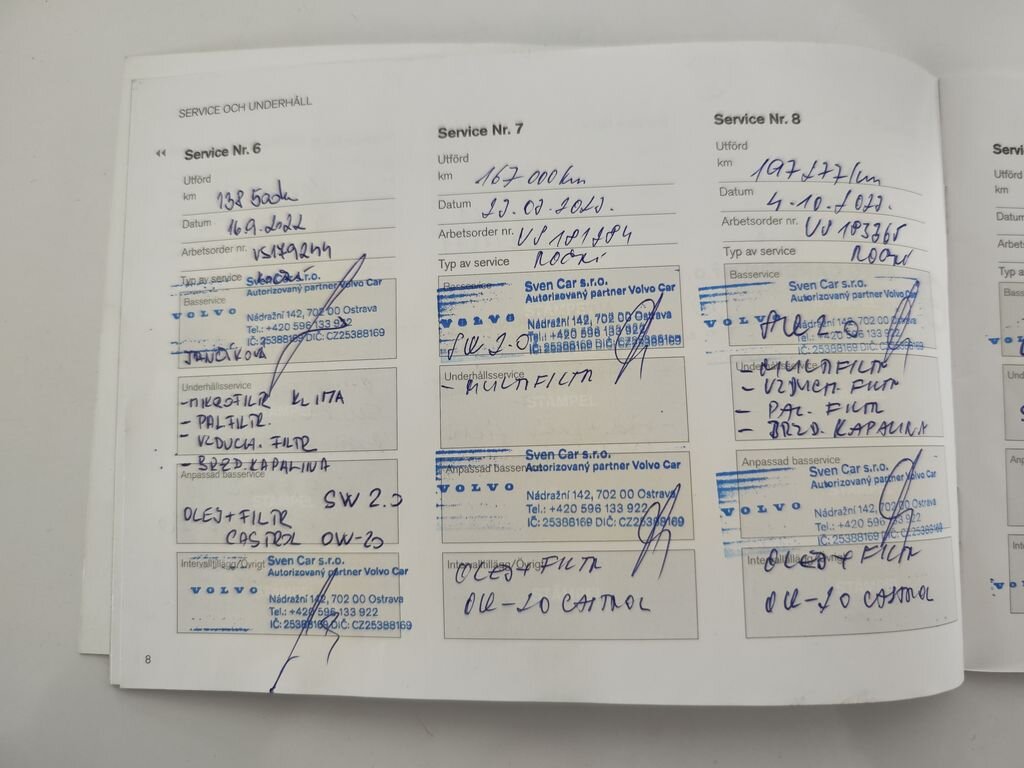 SERVICE OCH UNDERHÅLL
Service Nr. 6
Utförd
km
Datum 16.9.2022
Arbetsorder nr. VS179244
Typ av service
Basservice
Sven Car s.r.o.
Autorizovaný partner Volvo Car
VOLVO
Nádražní 142, 702 00 Ostrava
Tel.: +420 596 133 922
IČ: 25388169 DIČ: CZ25388169
JANČÍKOVÁ
Underhållsservice
- MIKROFILTR KLIMA
- PAL FILTR.
- VZDUCH. FILTR
- BRZD. KAPALINA
Anpassad basservice
SW 2.0
OLEJ + FILTR
CASTROL 0W-20
Intervalltillägg/Övrigt
Sven Car s.r.o.
Autorizovaný partner Volvo Car
VOLVO
Nádražní 142, 702 00 Ostrava
Tel.: +420 596 133 922
IČ: 25388169 DIČ: CZ25388169
8
Service Nr. 7
Utförd
km 167 000 km
Datum
Arbetsorder nr. VS 181784
Typ av service ROČNÍ
Basservice
Sven Car s.r.o.
Autorizovaný partner Volvo Car
VOLVO
Nádražní 142, 702 00 Ostrava
Tel.: +420 596 133 922
IČ: 25388169 DIČ: CZ25388169
SW 2.0
Underhållsservice
- MULTIFILTR
STÄMPEL
Anpassad basservice
Sven Car s.r.o.
Autorizovaný partner Volvo Car
VOLVO
Nádražní 142, 702 00 Ostrava
Tel.: +420 596 133 922
IČ: 25388169 DIČ: CZ25388169
Intervalltillägg/Övrigt
OLEJ + FILTR
0W-20 CASTROL
Service Nr. 8
Utförd
km 197277 km
Datum 4.10.2023.
Arbetsorder nr. VS 183365
Typ av service ROČNÍ
Basservice
Sven Car s.r.o.
Autorizovaný partner Volvo Car
VOLVO
Nádražní 142, 702 00 Ostrava
Tel.: +420 596 133 922
IČ: 25388169 DIČ: CZ25388169
SW 2.0
Underhållsservice
- MULTIFILTR
- VZDUCH. FILTR
- PAL. FILTR
- BRZD. KAPALINA
Anpassad basservice
Sven Car s.r.o.
Autorizovaný partner Volvo Car
VOLVO
Nádražní 142, 702 00 Ostrava
Tel.: +420 596 133 922
IČ: 25388169 DIČ: CZ25388169
Intervalltillägg/Övrigt
OLEJ + FILTR
0W-20 CASTROL
Servi
Utförd
km
Datum
Arbet
Typ a